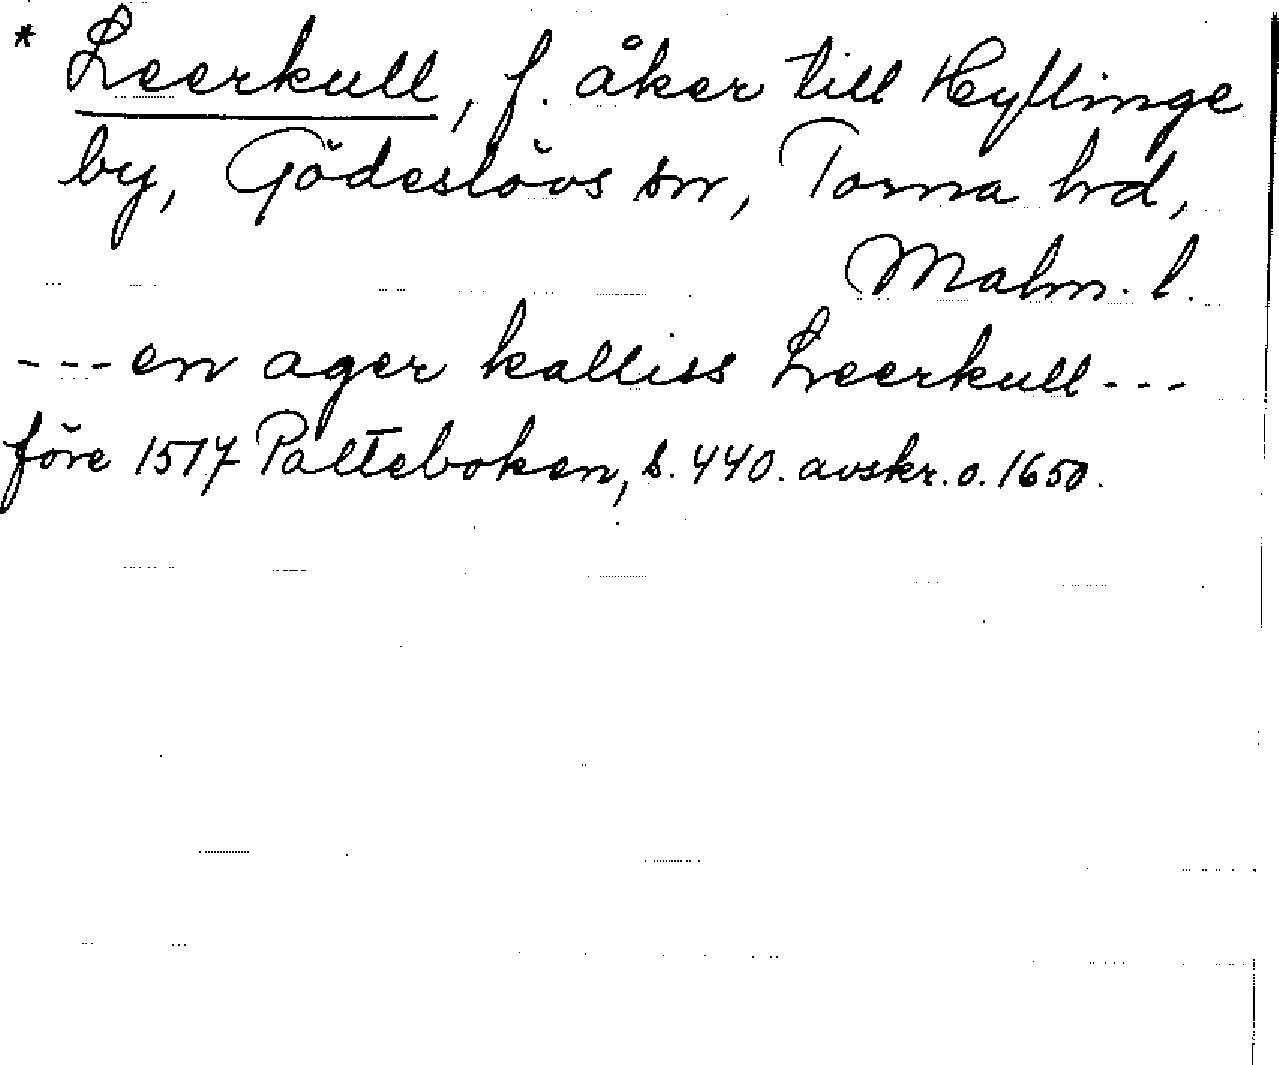 * Leerkull, f. åker till Hyllinge
by, Gödeslövs sn, Torna hd,
Malm. l.
--- en ager kalliss Leerkull ---
före 1517 Palteboken, s. 440. avskr. o. 1650.